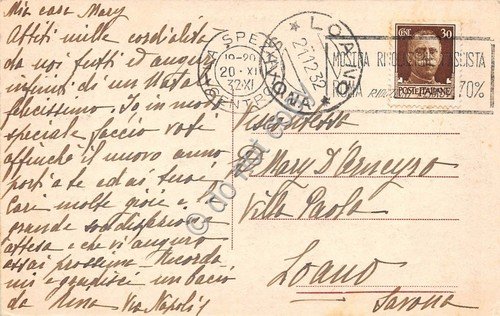 Mia cara Mary
Affiti mille cordialità
da noi tutti ed auguri
infiniti di un Natale
felicissimo. Io in modo
speciale faccio voti
affinchè il nuovo anno
porti a te ed ai tuoi
cari molte gioie e la
grande soddisfazione
attesa e che vi auguro
assai prossima. Ricorda
mi e gradisci un bacio
da Rina Via Napoli 5
LA SPEZIA
19-20
20·XII
32·XI
CENTRO
LOANO
21.12.32
MOSTRA RIVOLUZIONE FASCISTA
ROMA 70%
CENT. 30
POSTE ITALIANE
© do not copy
Mary D'Arneyro
Villa Paola
Loano
Savona